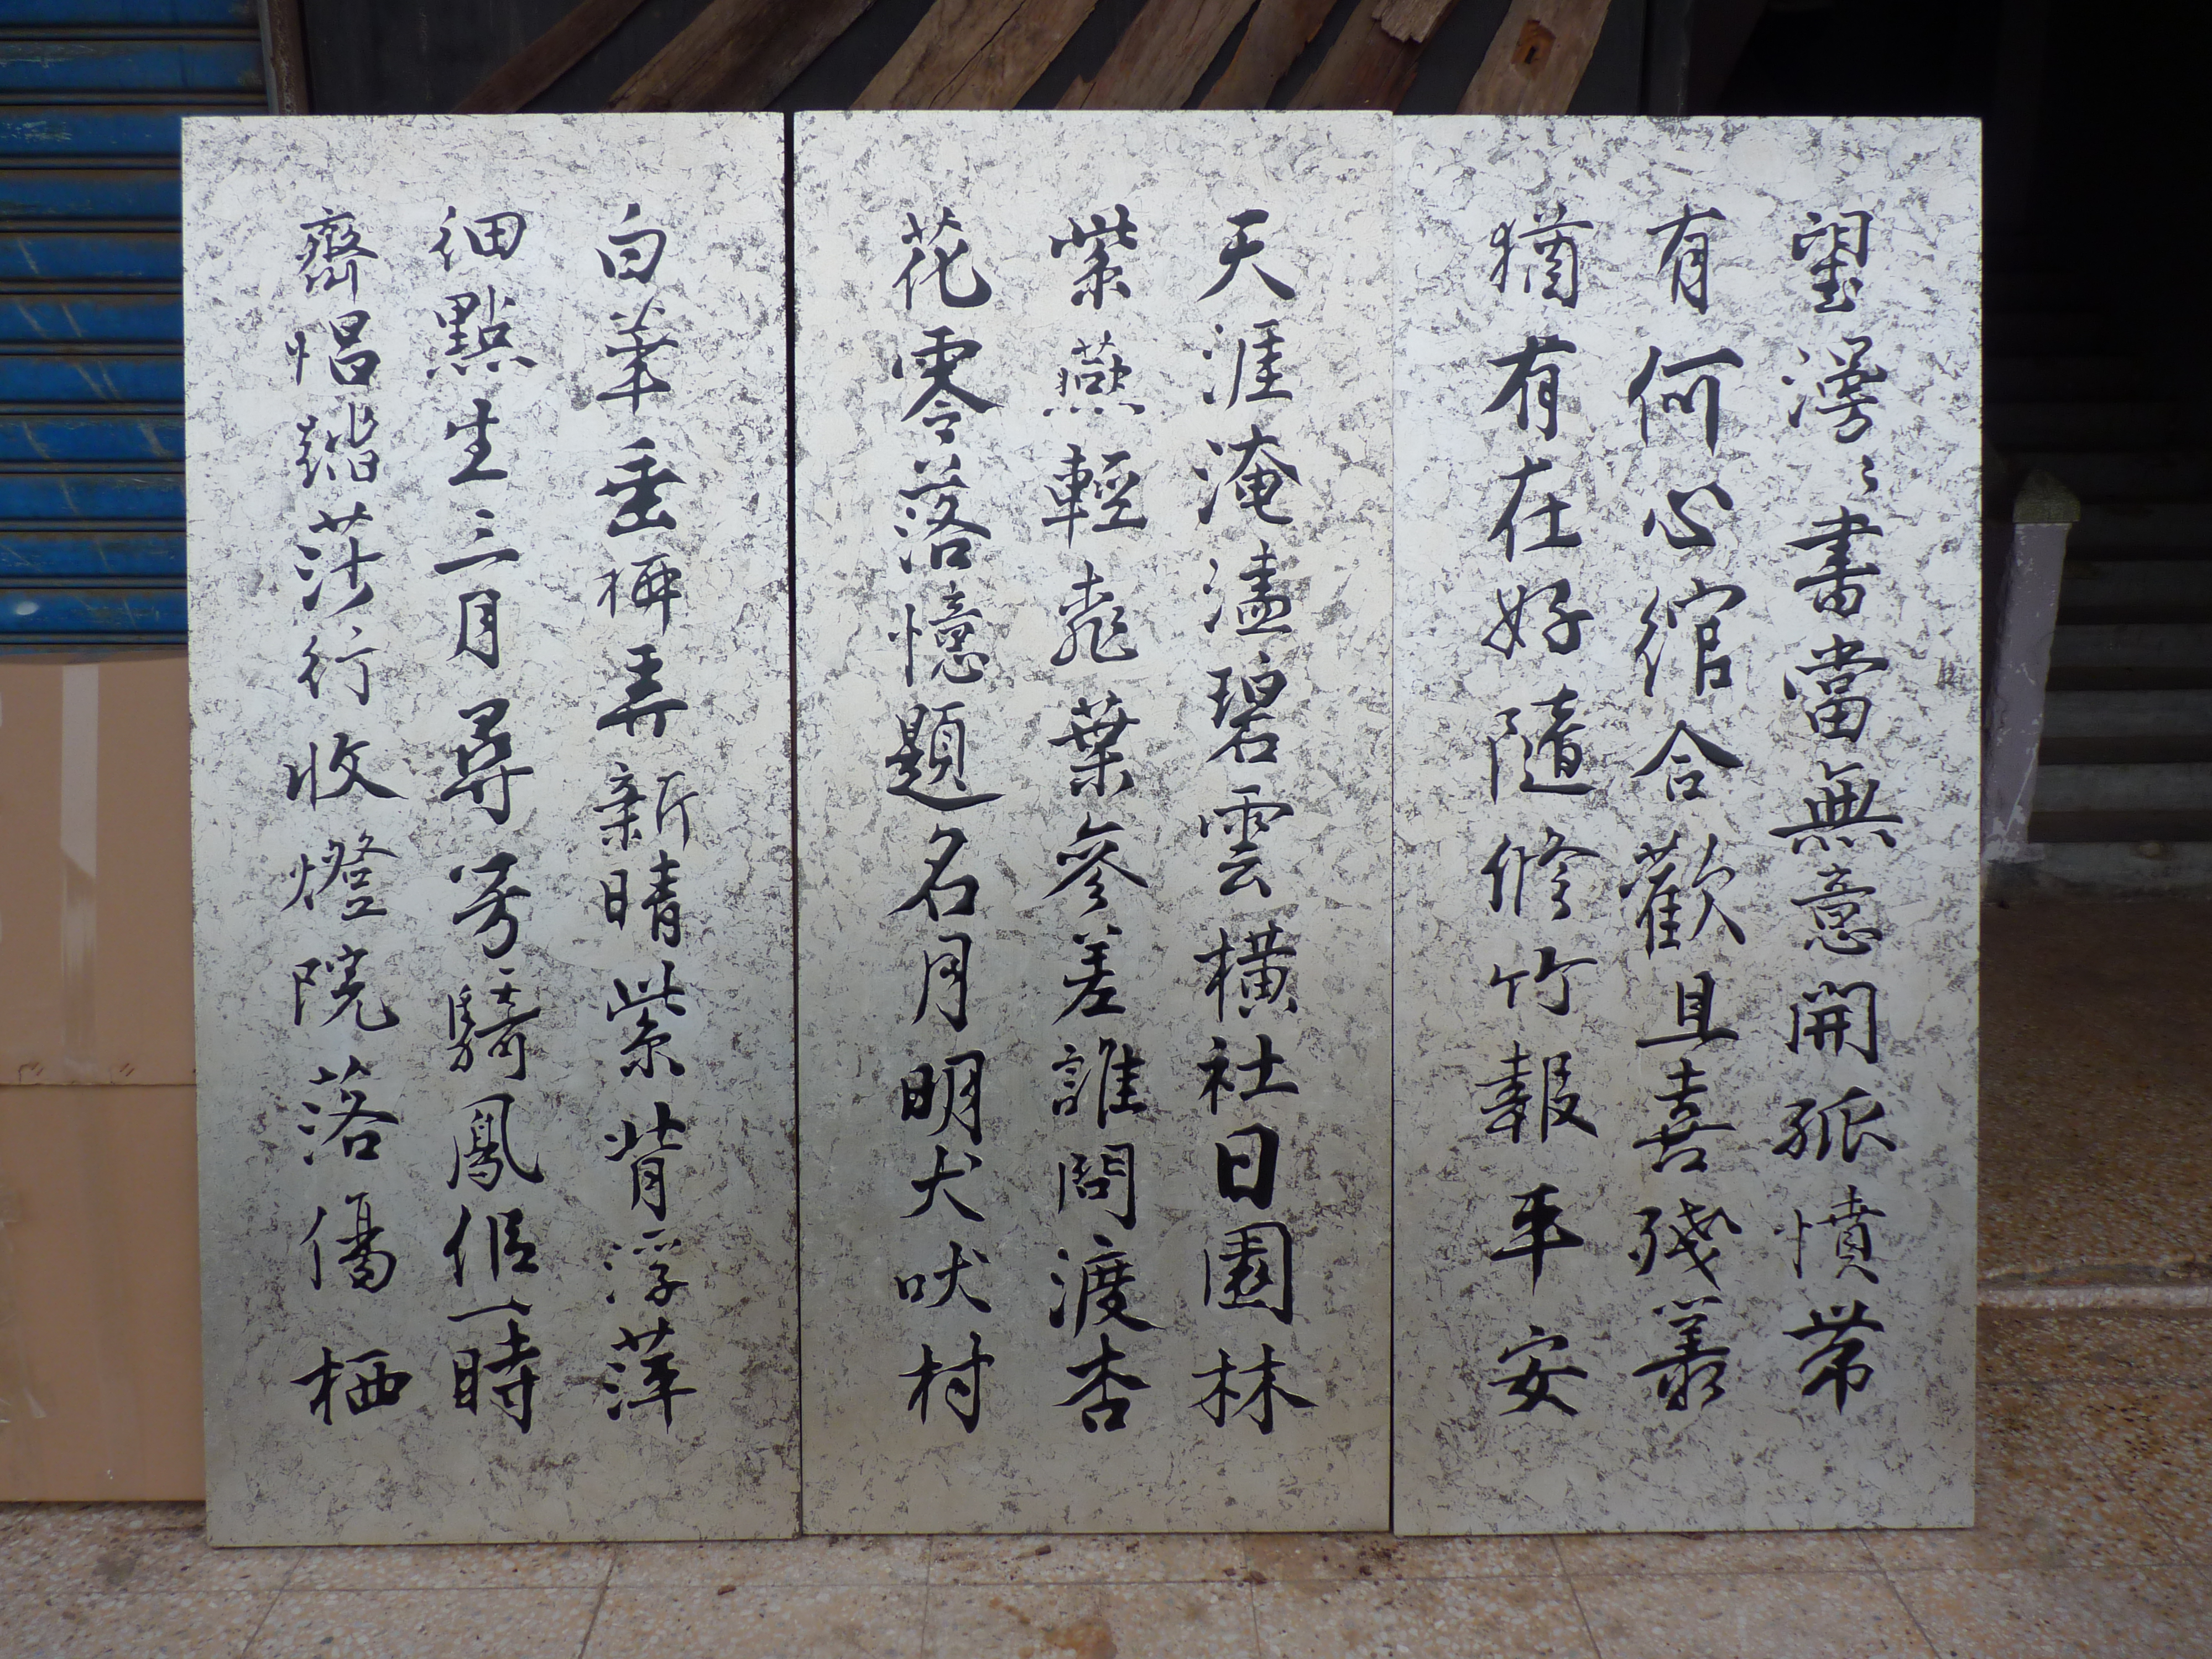 望書當無意開孤憤常
有何心綰合歡且喜殘叢
猶有在好隨修竹報平安
天涯淹溘碧雲橫社日園林
紫燕輕桃葉參差誰問渡杏
花零落憶題名月明犬吠村
白華垂柳弄新晴紫背浮萍
細點生三月尋芳騎鳳侶一時
齊唱踏莎行收燈院落僑栖